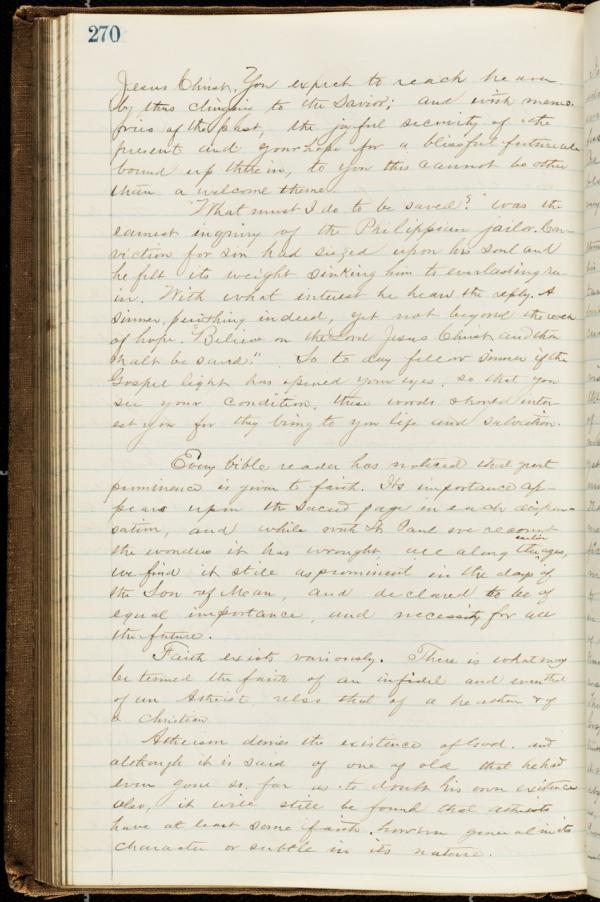 270
Jesus Christ. You expect to reach heaven
by thus clinging to the Savior; and with memo-
ries of the past, the joyful security of the
present and your hope for a blissful future all
bound up therein, to you this cannot be other
than a welcome theme.
"What must I do to be saved?" was the
earnest inquiry of the Philippian jailor. Con-
viction for sin had siezed upon his soul and
he felt its weight sinking him to everlasting ru-
in. With what interest he hears the reply. A
sinner, perishing indeed, yet not beyond the reach
of hope. "Believe on the Lord Jesus Christ and thou
shalt be saved." So to day fellow sinner if the
Gospel light has opened your eyes, so that you
see your condition, these words should inter-
est you for they bring to you life and salvation.
Every bible reader has noticed that great
prominence is given to faith. Its importance ap-
pears upon the sacred page in each dispen-
sation, and while with St Paul we recount
the wonders it has wrought all along the earlier ages,
we find it still as prominent in the days of
the Son of Man, and declared to be of
equal importance, and necessity for all
the future.
Faith exists variously. There is what may
be termed the faith of an infidel and even that
of an Atheist also that of a heathen & of
a Christian
Atheism denies the existence of God. and
although it is said of one of old that he had
even gone so far as to doubt his own existence
also, it will still be found that atheists
have at least some faith, however general in its
character or subtle in its nature.